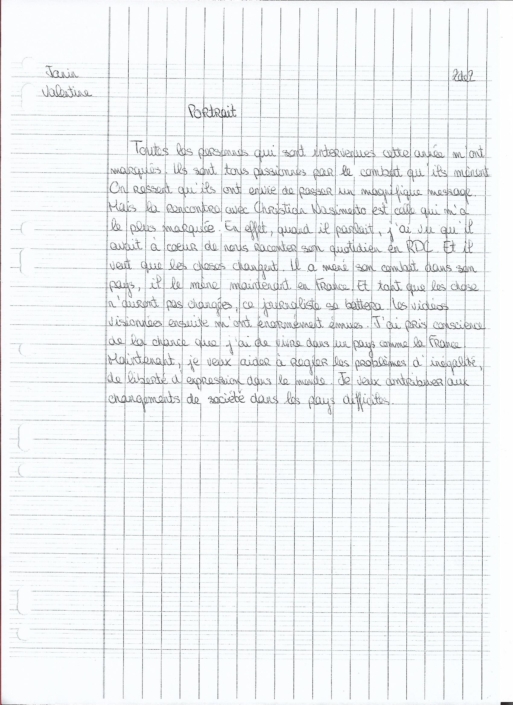 Janin
Valentine
2de2
Portrait
Toutes les personnes qui sont intervenues cette année m'ont
marqués. Ils sont tous passionnés par le combat qu'ils mènent
On ressent qu'ils ont envie de passer un magnifique message.
Mais la rencontre avec Christian est celle qui m'a
le plus marquée. En effet, quand il parlait, j'ai vu qu'il
avait à coeur de nous raconter son quotidien en RDC. Et il
veut que les choses changent. Il a mené son combat dans son
pays, il le mène maintenant en France. Et tant que les chose
n'auront pas changées, ce journaliste se battera. Les vidéos
visionnées ensuite m'ont énormément émues. J'ai pris conscience
de la chance que j'ai de vivre dans un pays comme la France
Maintenant, je veux aider à régler les problèmes d'inégalité,
de liberté d'expression dans le monde. Je veux contribuer aux
changements de société dans les pays difficiles.